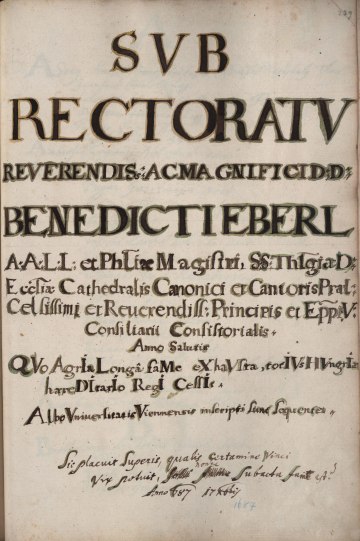 SVB
RECTORATV
REVERENDIS: AC MAGNIFICI D:D:
BENEDICTI EBERL
A:A:L:L: et Phliæ Magistri, SS: Thlgiæ D:
Ecclesiæ Cathedralis Canonici et Cantoris Præl:
Celsissimi et Reverendiss: Principis et Epp: V:
Consiliarii Consistorialis.
Anno Salutis
QVo AgrIa Longâ faMe eXhaVsta, totIVs HVngrIæ
hæreDItarIo RegI CessIt.
Albo Universitatis Viennensis inscripti sunt sequentes.
Sic placuit Superis, qualis certamine Vinci
Vix potuit, subacta fame est
Anno 1687 17
1687